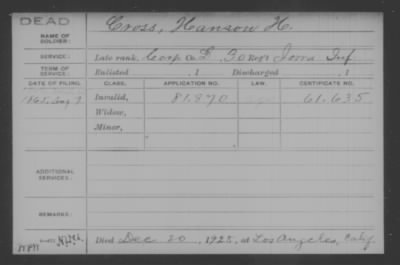 DEAD
NAME OF SOLDIER: Cross, Hanson H.
SERVICE: Late rank, Corp Co. E, 30 Reg't Iowa Inf
TERM OF SERVICE: Enlisted , 1 Discharged , 1
DATE OF FILING. CLASS. APPLICATION NO. LAW. CERTIFICATE NO.
1865, Aug 7 Invalid, 81.870 61.635
Widow,
Minor,
ADDITIONAL SERVICES:
REMARKS:
Died Dec 20, 1925, at Los Angeles, Calif.